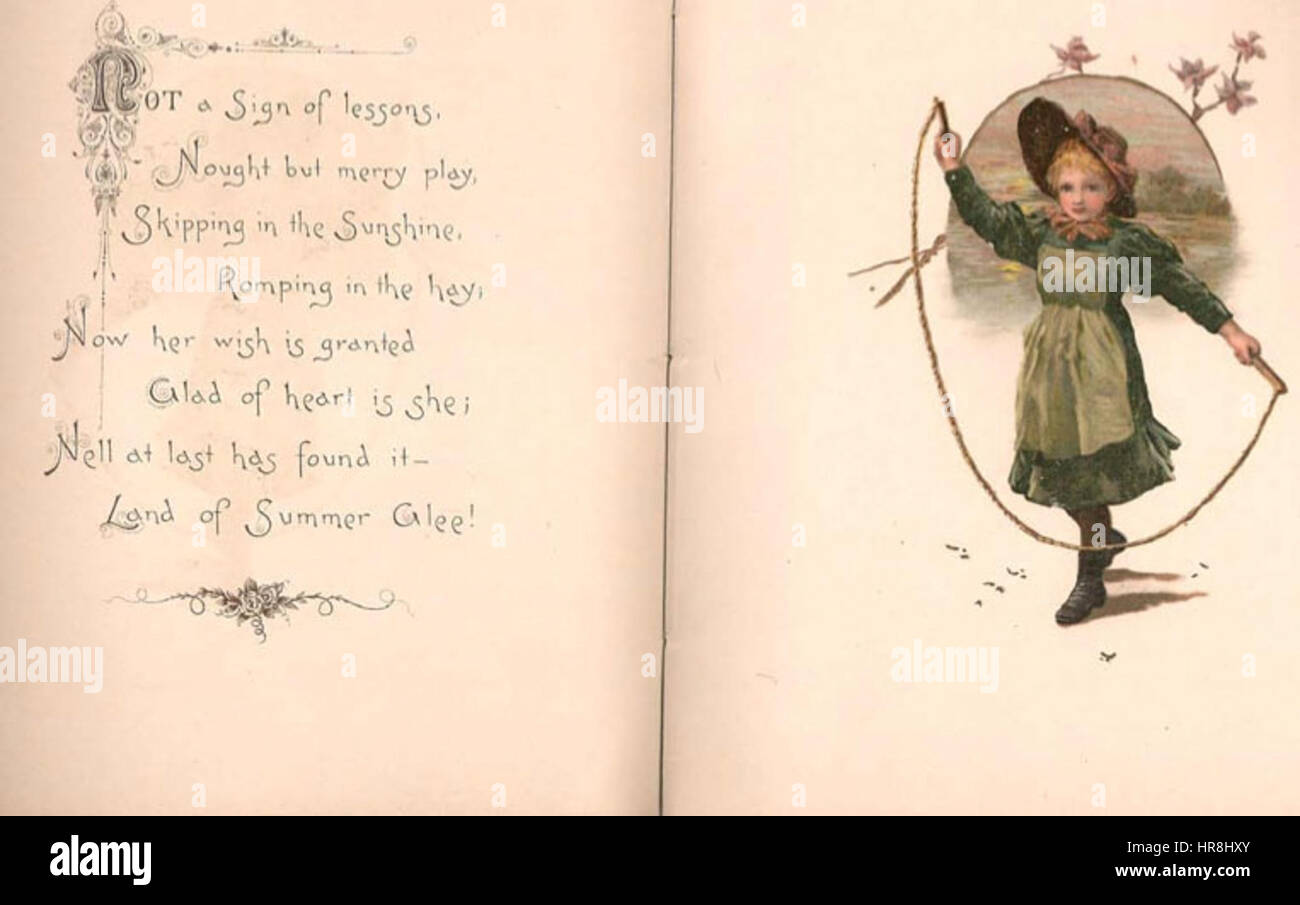 Not a Sign of lessons,
Nought but merry play,
Skipping in the Sunshine,
Romping in the hay;
Now her wish is granted
Glad of heart is she;
Nell at last has found it—
Land of Summer Glee!
alamy stock photo
alamy
Image ID: HR8HXY
www.alamy.com